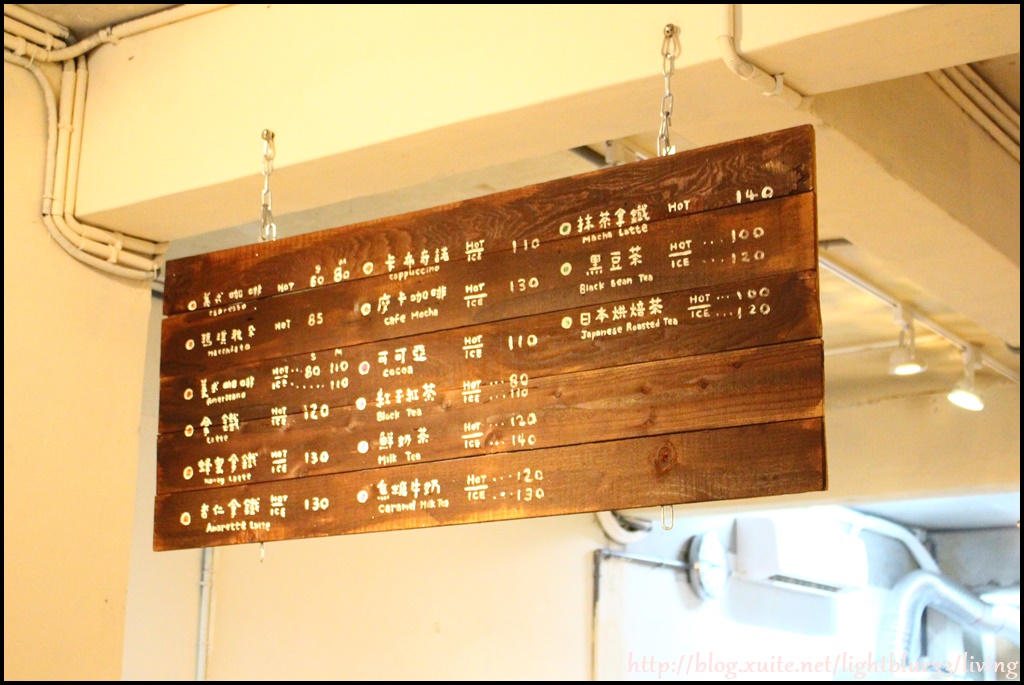 咖啡 HOT S M 60 80
Espresso
瑪琪雅朵 HOT 85
Macchiato
美式咖啡 HOT... S 80 M 110
ICE...... 110
Americano
拿鐵 HOT ICE 120
Latte
蜂蜜拿鐵 HOT ICE 130
Honey Latte
杏仁拿鐵 HOT ICE 130
Amaretto Latte
卡布奇諾 HOT ICE 110
Cappuccino
摩卡咖啡 HOT ICE 130
Cafe Mocha
可可亞 HOT ICE 110
Cocoa
紅茶 HOT ... 80
ICE ... 110
Black Tea
鮮奶茶 HOT ... 120
ICE ... 140
Milk Tea
焦糖牛奶 HOT ... 120
ICE ... 130
Caramel Milk Tea
抹茶拿鐵 HOT 140
Macha Latte
黑豆茶 HOT ... 100
ICE ... 120
Black Bean Tea
日本烘焙茶 HOT ... 100
ICE ... 120
Japanese Roasted Tea